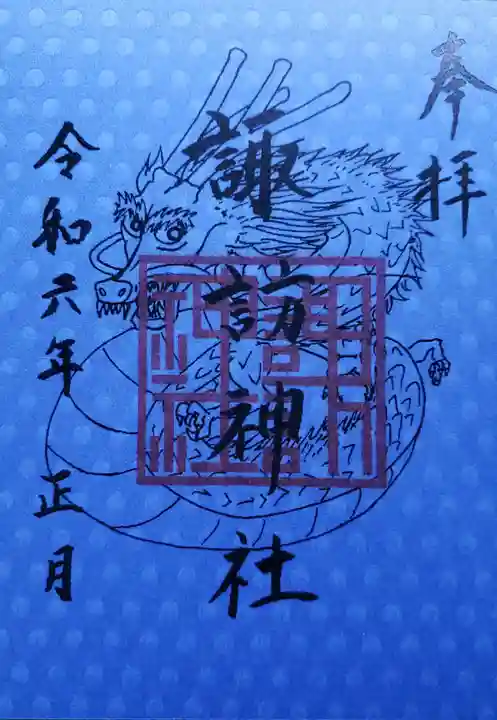 奉拝
諏訪神社
令和六年正月